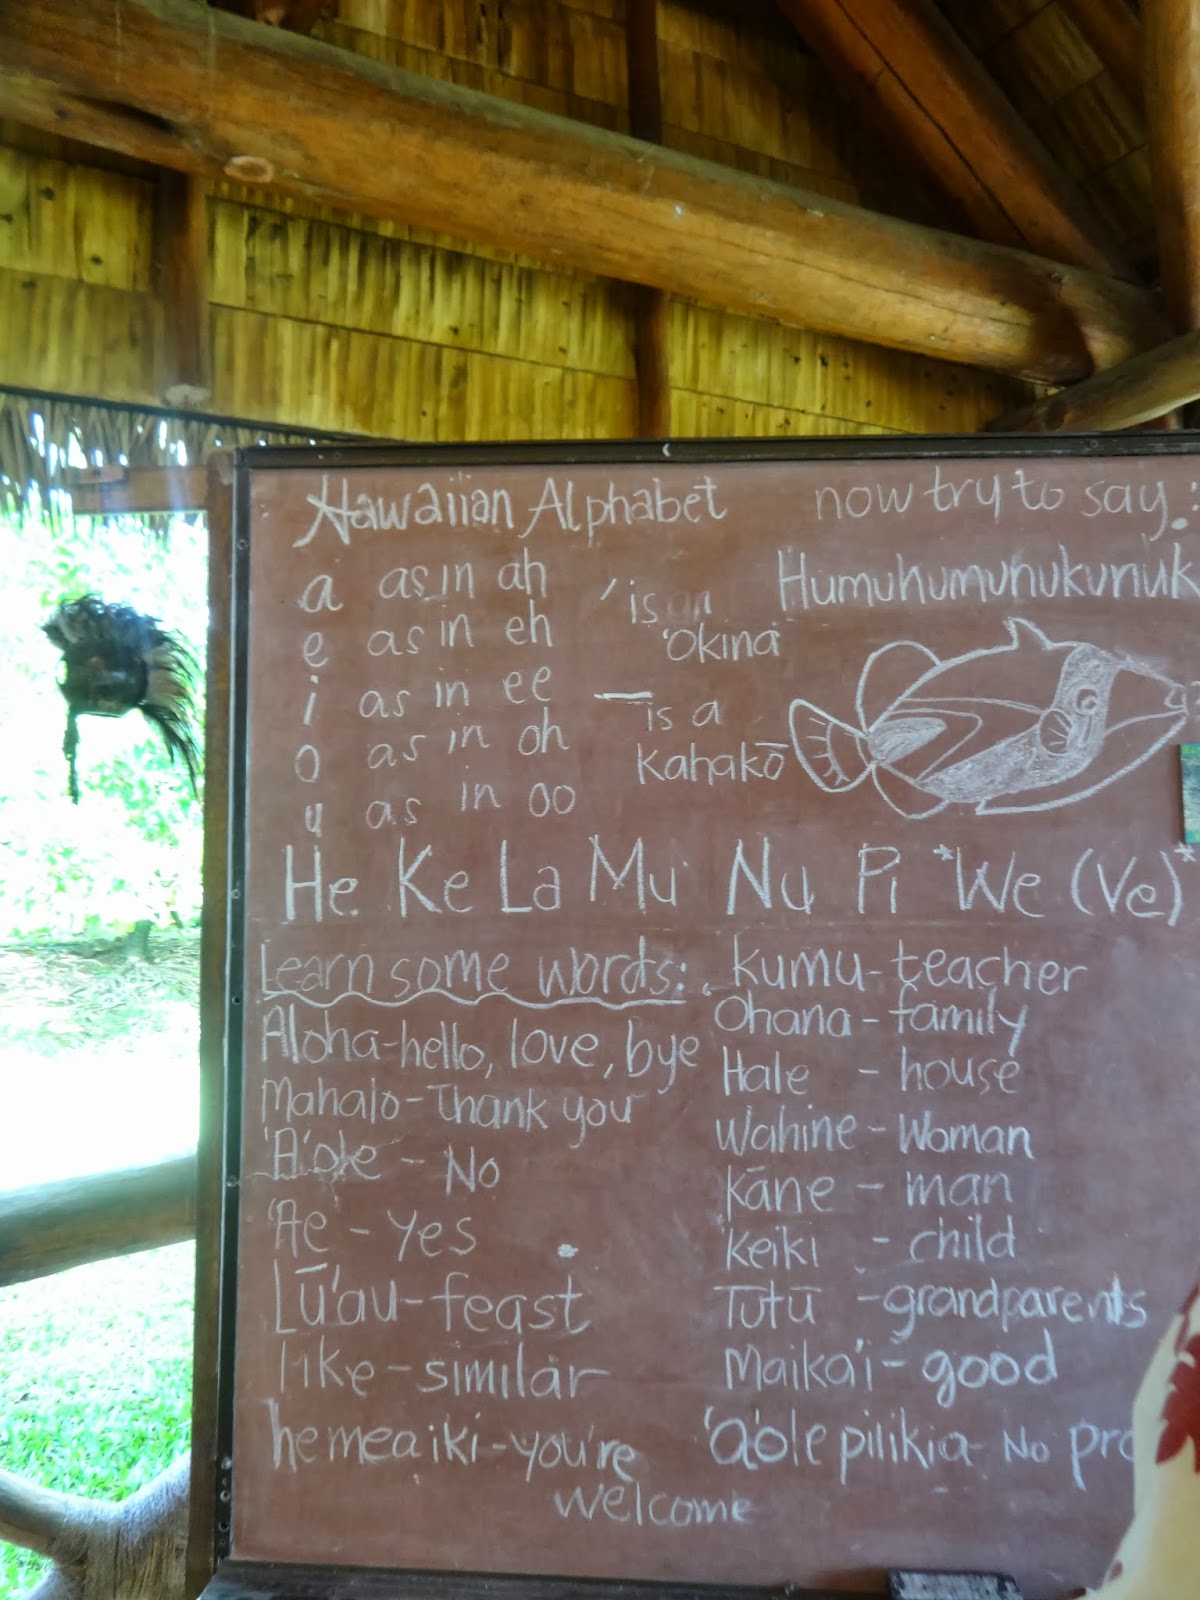 Hawaiian Alphabet
a as in ah
e as in eh
i as in ee
o as in oh
u as in oo
' is an
'Okina
— is a
Kahakō
now try to say:
Humuhumunukunuk
He Ke La Mu Nu Pi *We (Ve)*
Learn some words:
Aloha-hello, love, bye
Mahalo-Thank you
'A'ole - No
'Ae - Yes
Lū'au-feast
like-similar
he mea iki-you're
welcome
Kumu-teacher
Ohana-family
Hale - house
Wahine-Woman
Kāne - man
Keiki - child
Tūtū -grandparents
Maika'i-good
'a'ole pilikia- No pro